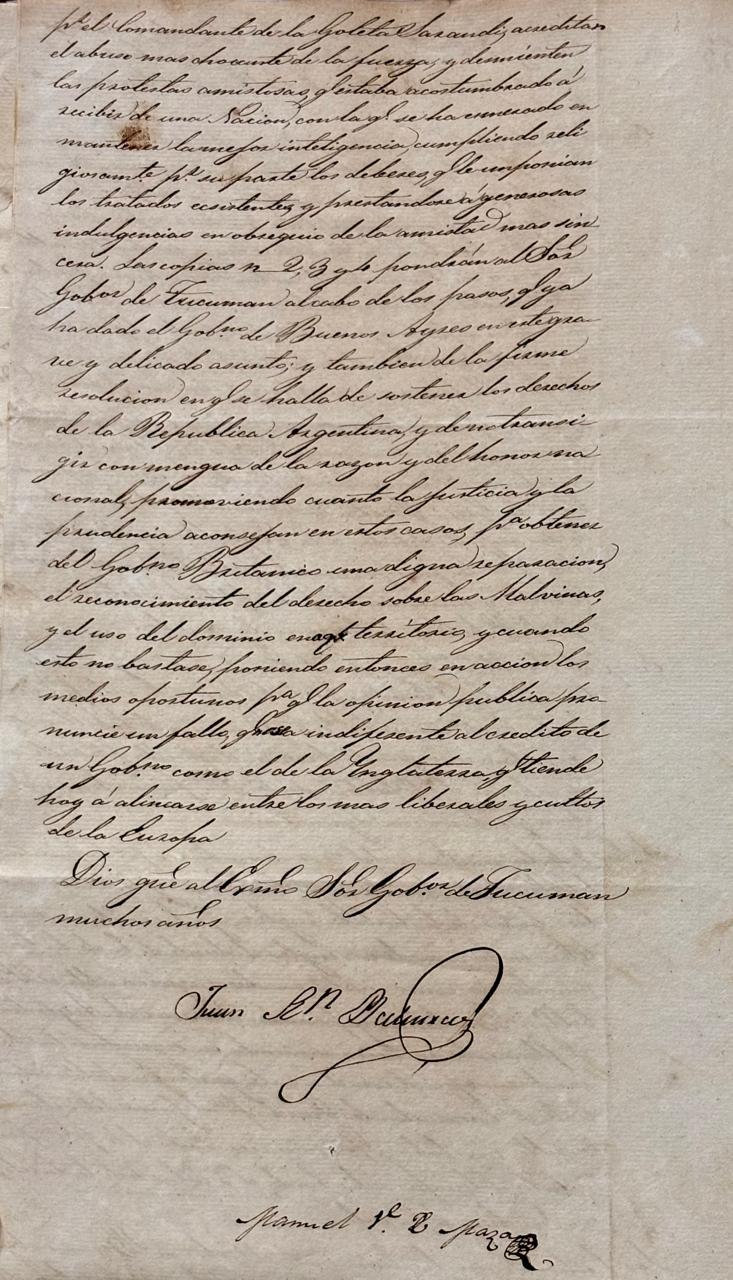 pr. el Comandante de la Goleta Sarandi, acreditan
el abuso mas chocante de la fuerza, y desmienten
las protestas amistosas, q.e estaba acostumbrado á
recibir de una Nacion, con la q.e se ha esmerado en
mantener la mejor inteligencia, cumpliendo reli
giosamte pr. su parte los deberes, q.e le imponian
los tratados ecsistentes, y prestandose á generosas
indulgencias en obsequio de la amistad mas sin
cera. Las copias n. 2, 3 y 4 pondrán al Sōr
Gobor. de Tucuman al cabo de los pasos, q.e ya
ha dado el Gobno. de Buenos Ayres en este gra-
ve y delicado asunto; y tambien de la firme
resolucion en q.e se halla de sostener los derechos
de la Republica Argentina, y de no transi-
gir con mengua de la razon y del honor na
cional, promoviendo cuanto la justicia y la
prudencia aconsejan en estos casos, pa. obtener
del Gobno. Britanico una digna reparacion,
el reconocimiento del derecho sobre las Malvinas,
y el uso del dominio en aql. territorio, y cuando
esto no bastase, poniendo entonces en accion los
medios oportunos pa. q.e la opinion publica pro
nuncie un fallo, q.e no sea indiferente al credito de
un Gobno. como el de la Inglaterra, q.e tiende
hoy á alinearse entre los mas liberales y cultos
de la Europa
Dios gūe al Exm̄o Sōr Gobor. de Tucuman
muchos años
Juan Rn. Balcarce
Manuel Ve. de Maza